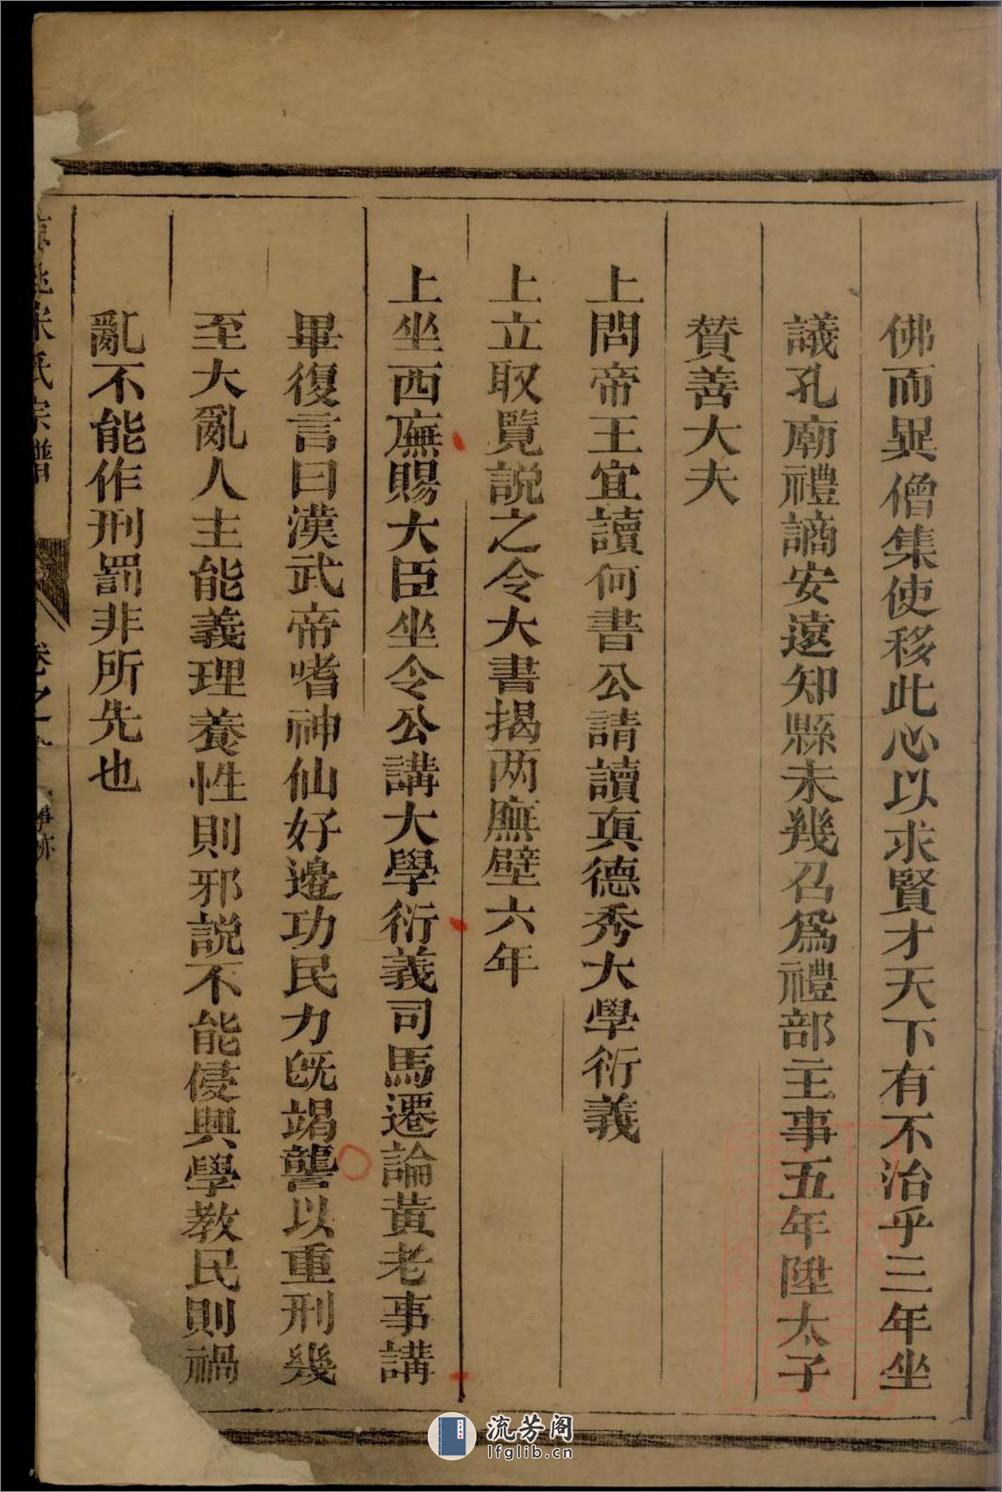 佛而異僧集使移此心以求賢才天下有不治乎三年坐
議孔廟禮謫安遠知縣未幾召爲禮部主事五年陞太子
贊善大夫
上問帝王宜讀何書公請讀真德秀大學衍義
上立取覽説之令大書揭两廡壁六年
上坐西廡賜大臣坐令公講大學衍義司馬遷論黃老事講
畢復言曰漢武帝嗜神仙好邊功民力旣竭讋以重刑幾
至大亂人主能義理養性則邪説不能侵興學教民則禍
亂不能作刑罰非所先也
宋氏宗譜
卷之
流芳阁
lfglib.cn